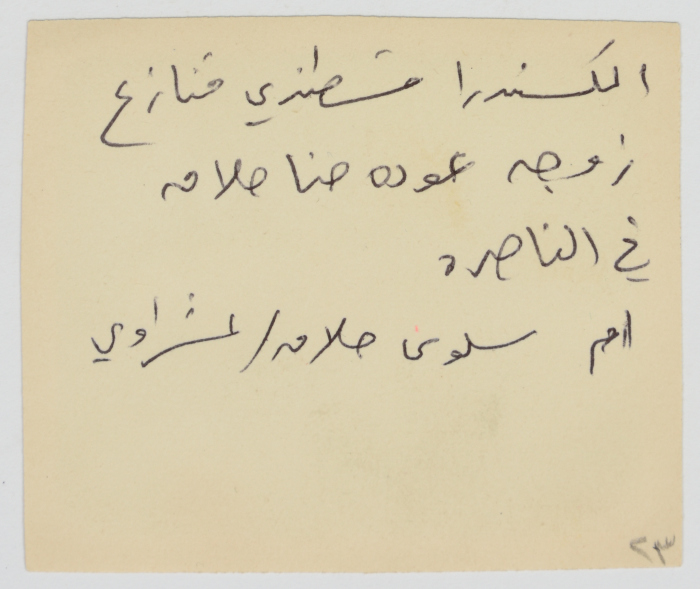 الكسندرا قسطندي قنازع
زوجه عوده حنا حلاقه
في الناصره
ام سلوى حلاقه/عشراوي
٢٣